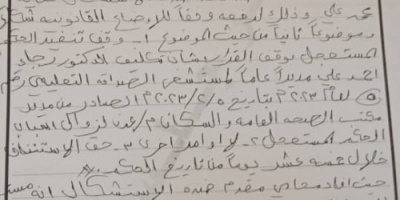 علي وذلك لرفعه وفقاً للأوضاع القانونية
وموضوعاً ثانياً من حيث الموضوع ١- وقف تنفيذ الحكم
المستعجل بوقف القرار بشأن تكليف الدكتور رجاء
احمد علي مديراً عاماً لمستشفى الصداقة التعليمي رقم
(٥) لعام ٢٠٢٣م بتاريخ ٢٠٢٣/٢/٥م الصادر من مدير
مكتب الصحة العامة والسكان م/عدن لزوال اسباب
الحكم المستعجل ٢- لا اوامر اخرى ٣- حق الاستئناف
خلال خمسة عشر يوماً من تاريخ الحكم
حيث افاد محامي مقدم ضده الاستشكال انه